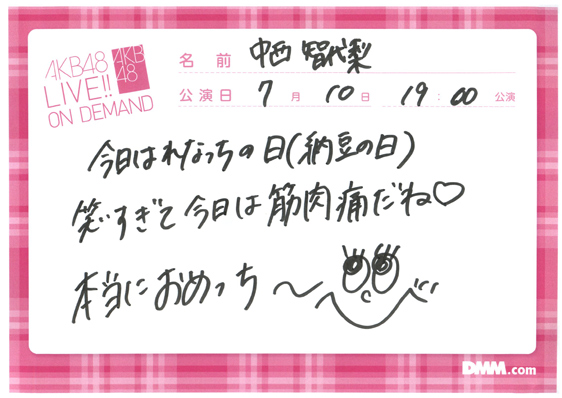 AKB48
LIVE!!
ON DEMAND
AKB
48
名前 中西 智代梨
公演日 7月10日 19:00 公演
今日はれなっちの日(納豆の日)
笑いすぎて今日は筋肉痛だね♡
本当におめっち〜
DMM.com